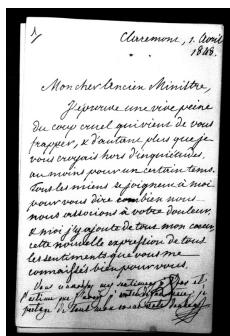 Claremont, 1. Avril
1848.
Mon cher Ancien Ministre,
J'éprouve une vive peine
du coup cruel qui vient de vous
frapper, & d'autant plus que je
vous croyais hors d'inquiétudes.
au moins pour un certain tems.
Tous les miens se joignent à moi
pour vous dire combien nous
nous associons à votre douleur,
& moi j'y ajoute de tous mon coeur,
cette nouvelle expression de tous
les sentiments que vous me
connaissez bien pour vous.
Vous
de tout